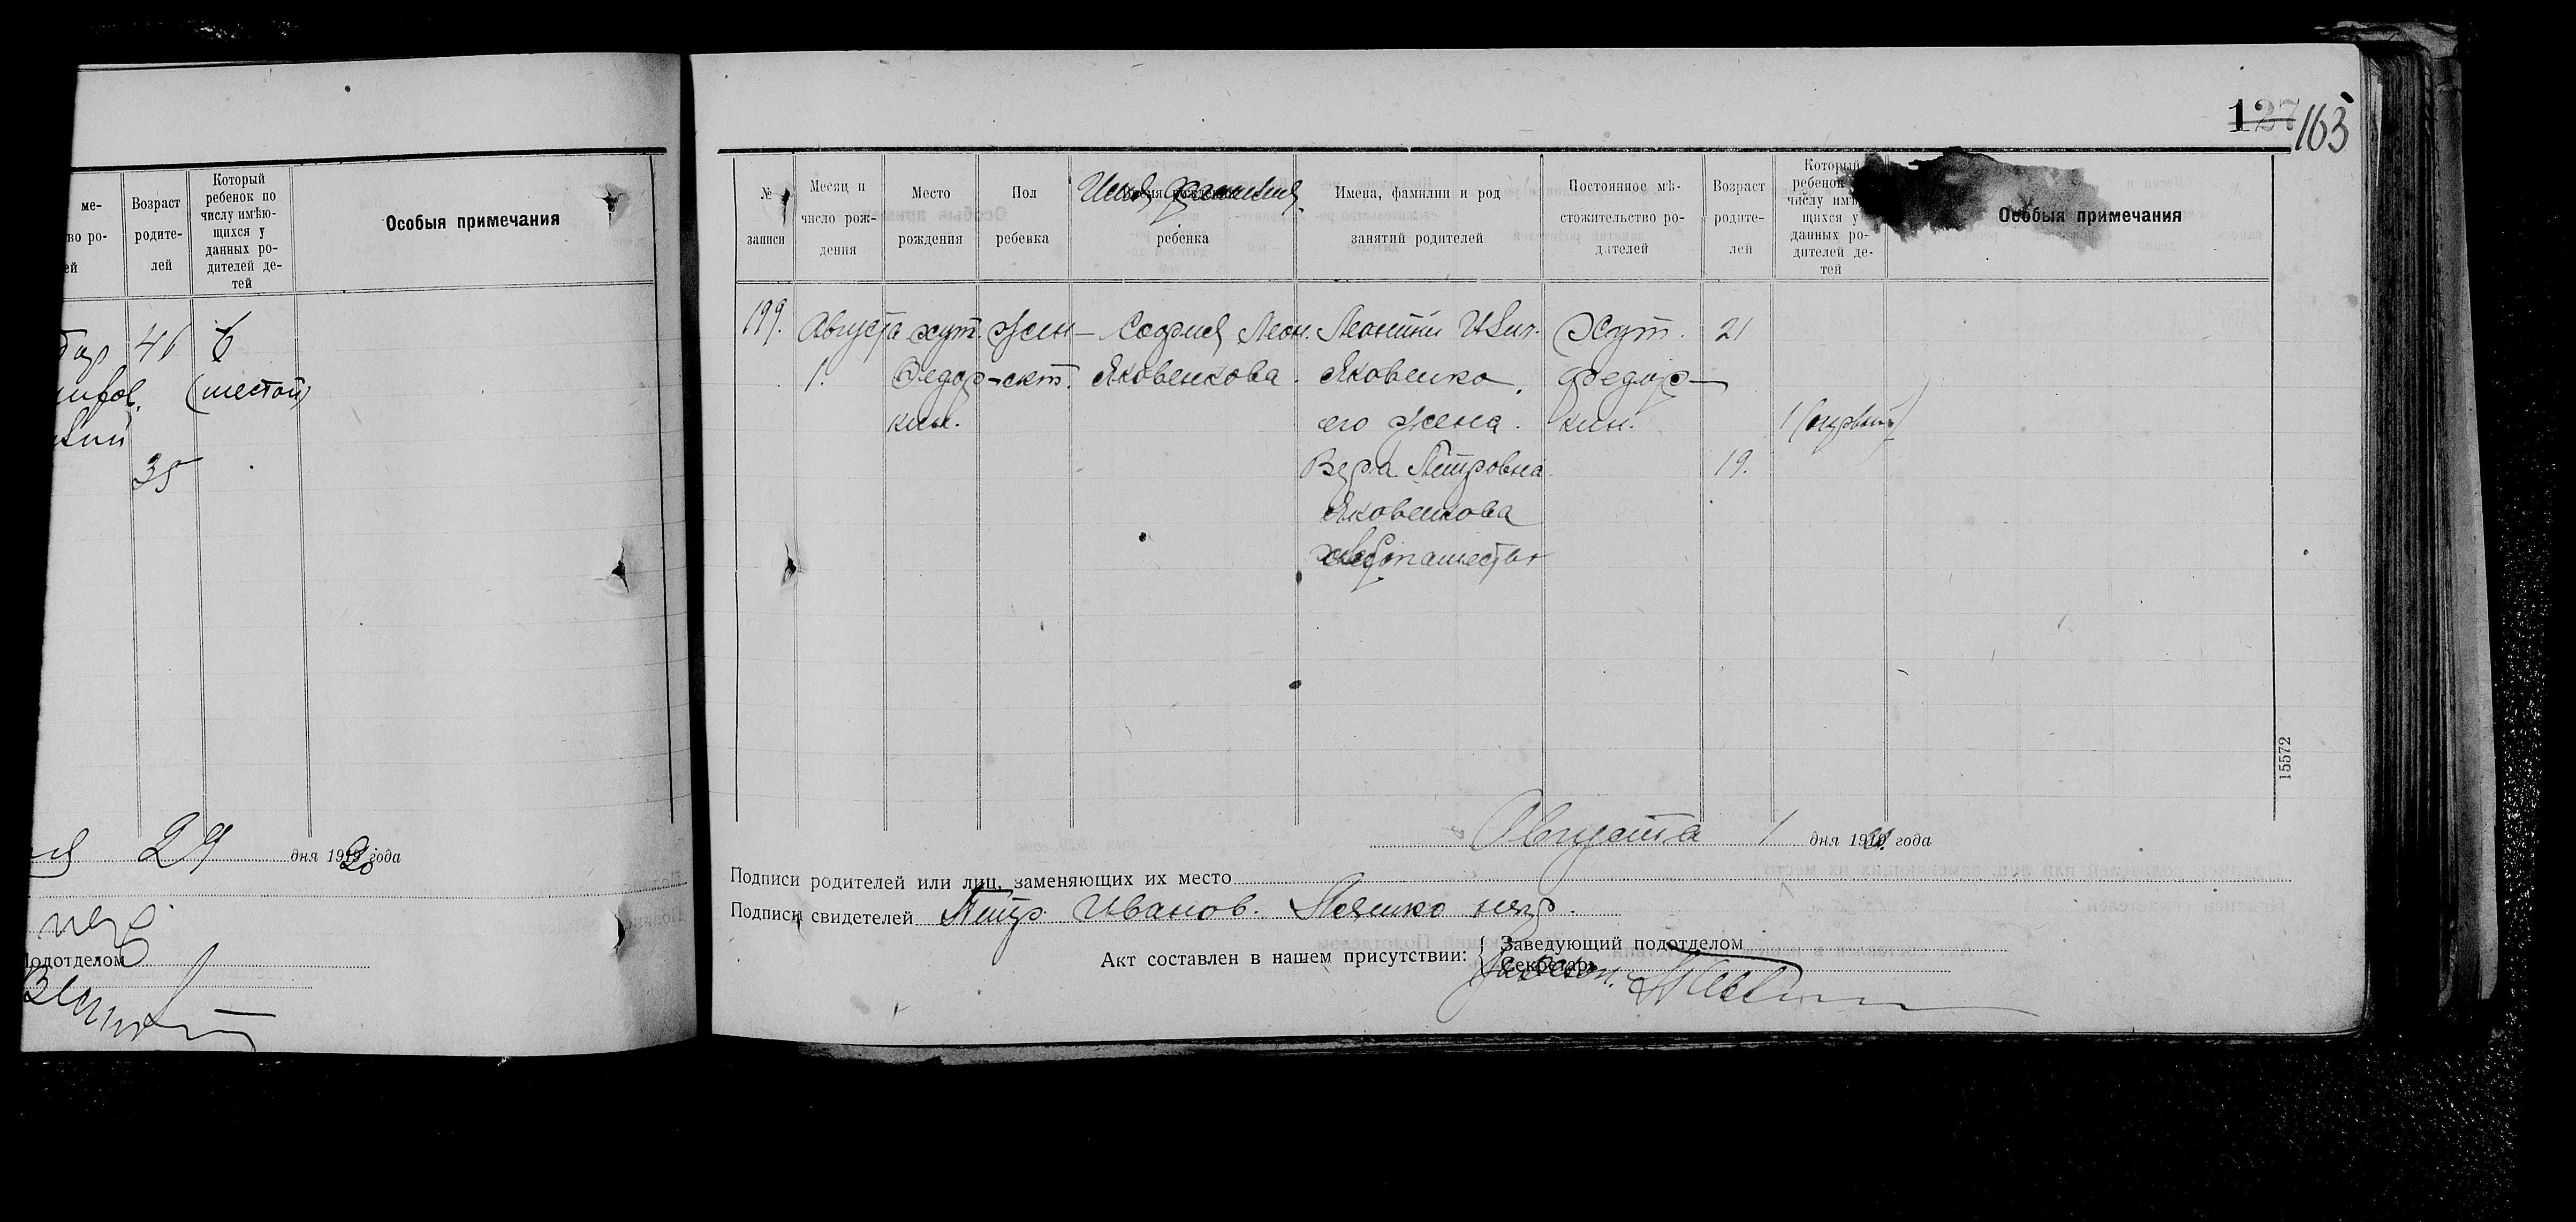 ме-
во ро-
ей
Возраст
родите-
лей
Который
ребенок по
числу имѣю-
щихся у
данных ро-
дителей де-
тей
Особыя примечания
46
6
(шестой)
35
29 дня 1920 года
подотделом
127 163
№
записи
Месяц и
число рож-
дения
Место
рождения
Пол
ребенка
Имя, фамилия
ребенка
Имена, фамилии и род
занятий родителей
Постоянное мѣ-
стожительство ро-
дителей
Возраст
родите-
лей
Который
ребенок
числу имѣ
щихся у
данных ро-
дителей де-
тей
Особыя примечания
199. Августа хут. жен- София Леон. Леонтий Хут. 21
1. Федор- ск. Яковенкова. Яковенко, Федор-
кин. его жена. кин. 1 (первый)
Вера Петровна 19.
Яковенкова
хлебопашество
15572
Августа 1 дня 1920. года
Подписи родителей или лиц, заменяющих их место
Подписи свидетелей Петр Иванов. негр.
Акт составлен в нашем присутствии:
Заведующий подотделом
Секретарь